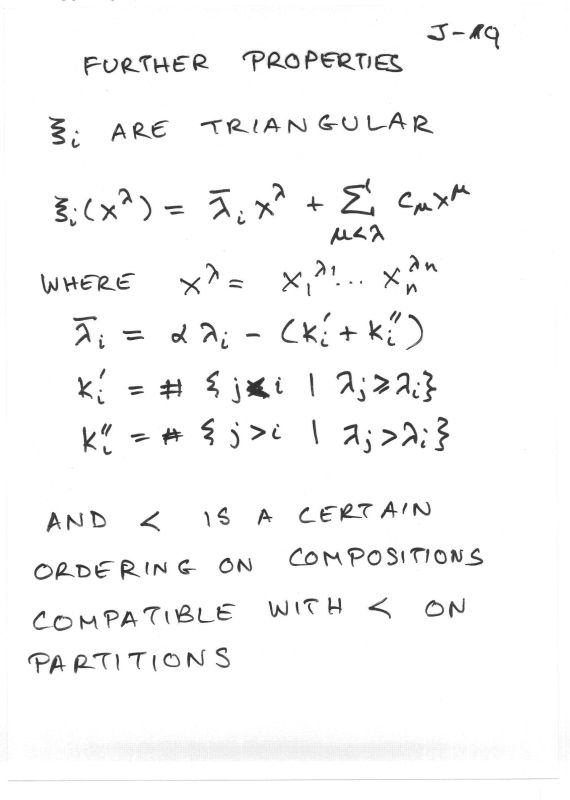 J-19
FURTHER PROPERTIES
ξᵢ ARE TRIANGULAR
ξᵢ(x^λ) = λ̄ᵢ x^λ + Σ_{μ<λ} c_μ x^μ
WHERE x^λ = x₁^{λ₁} ... xₙ^{λₙ}
λ̄ᵢ = α λᵢ - (kᵢ′ + kᵢ″)
kᵢ′ = # { j < i | λⱼ ≥ λᵢ }
kᵢ″ = # { j > i | λⱼ > λᵢ }
AND < IS A CERTAIN
ORDERING ON COMPOSITIONS
COMPATIBLE WITH < ON
PARTITIONS